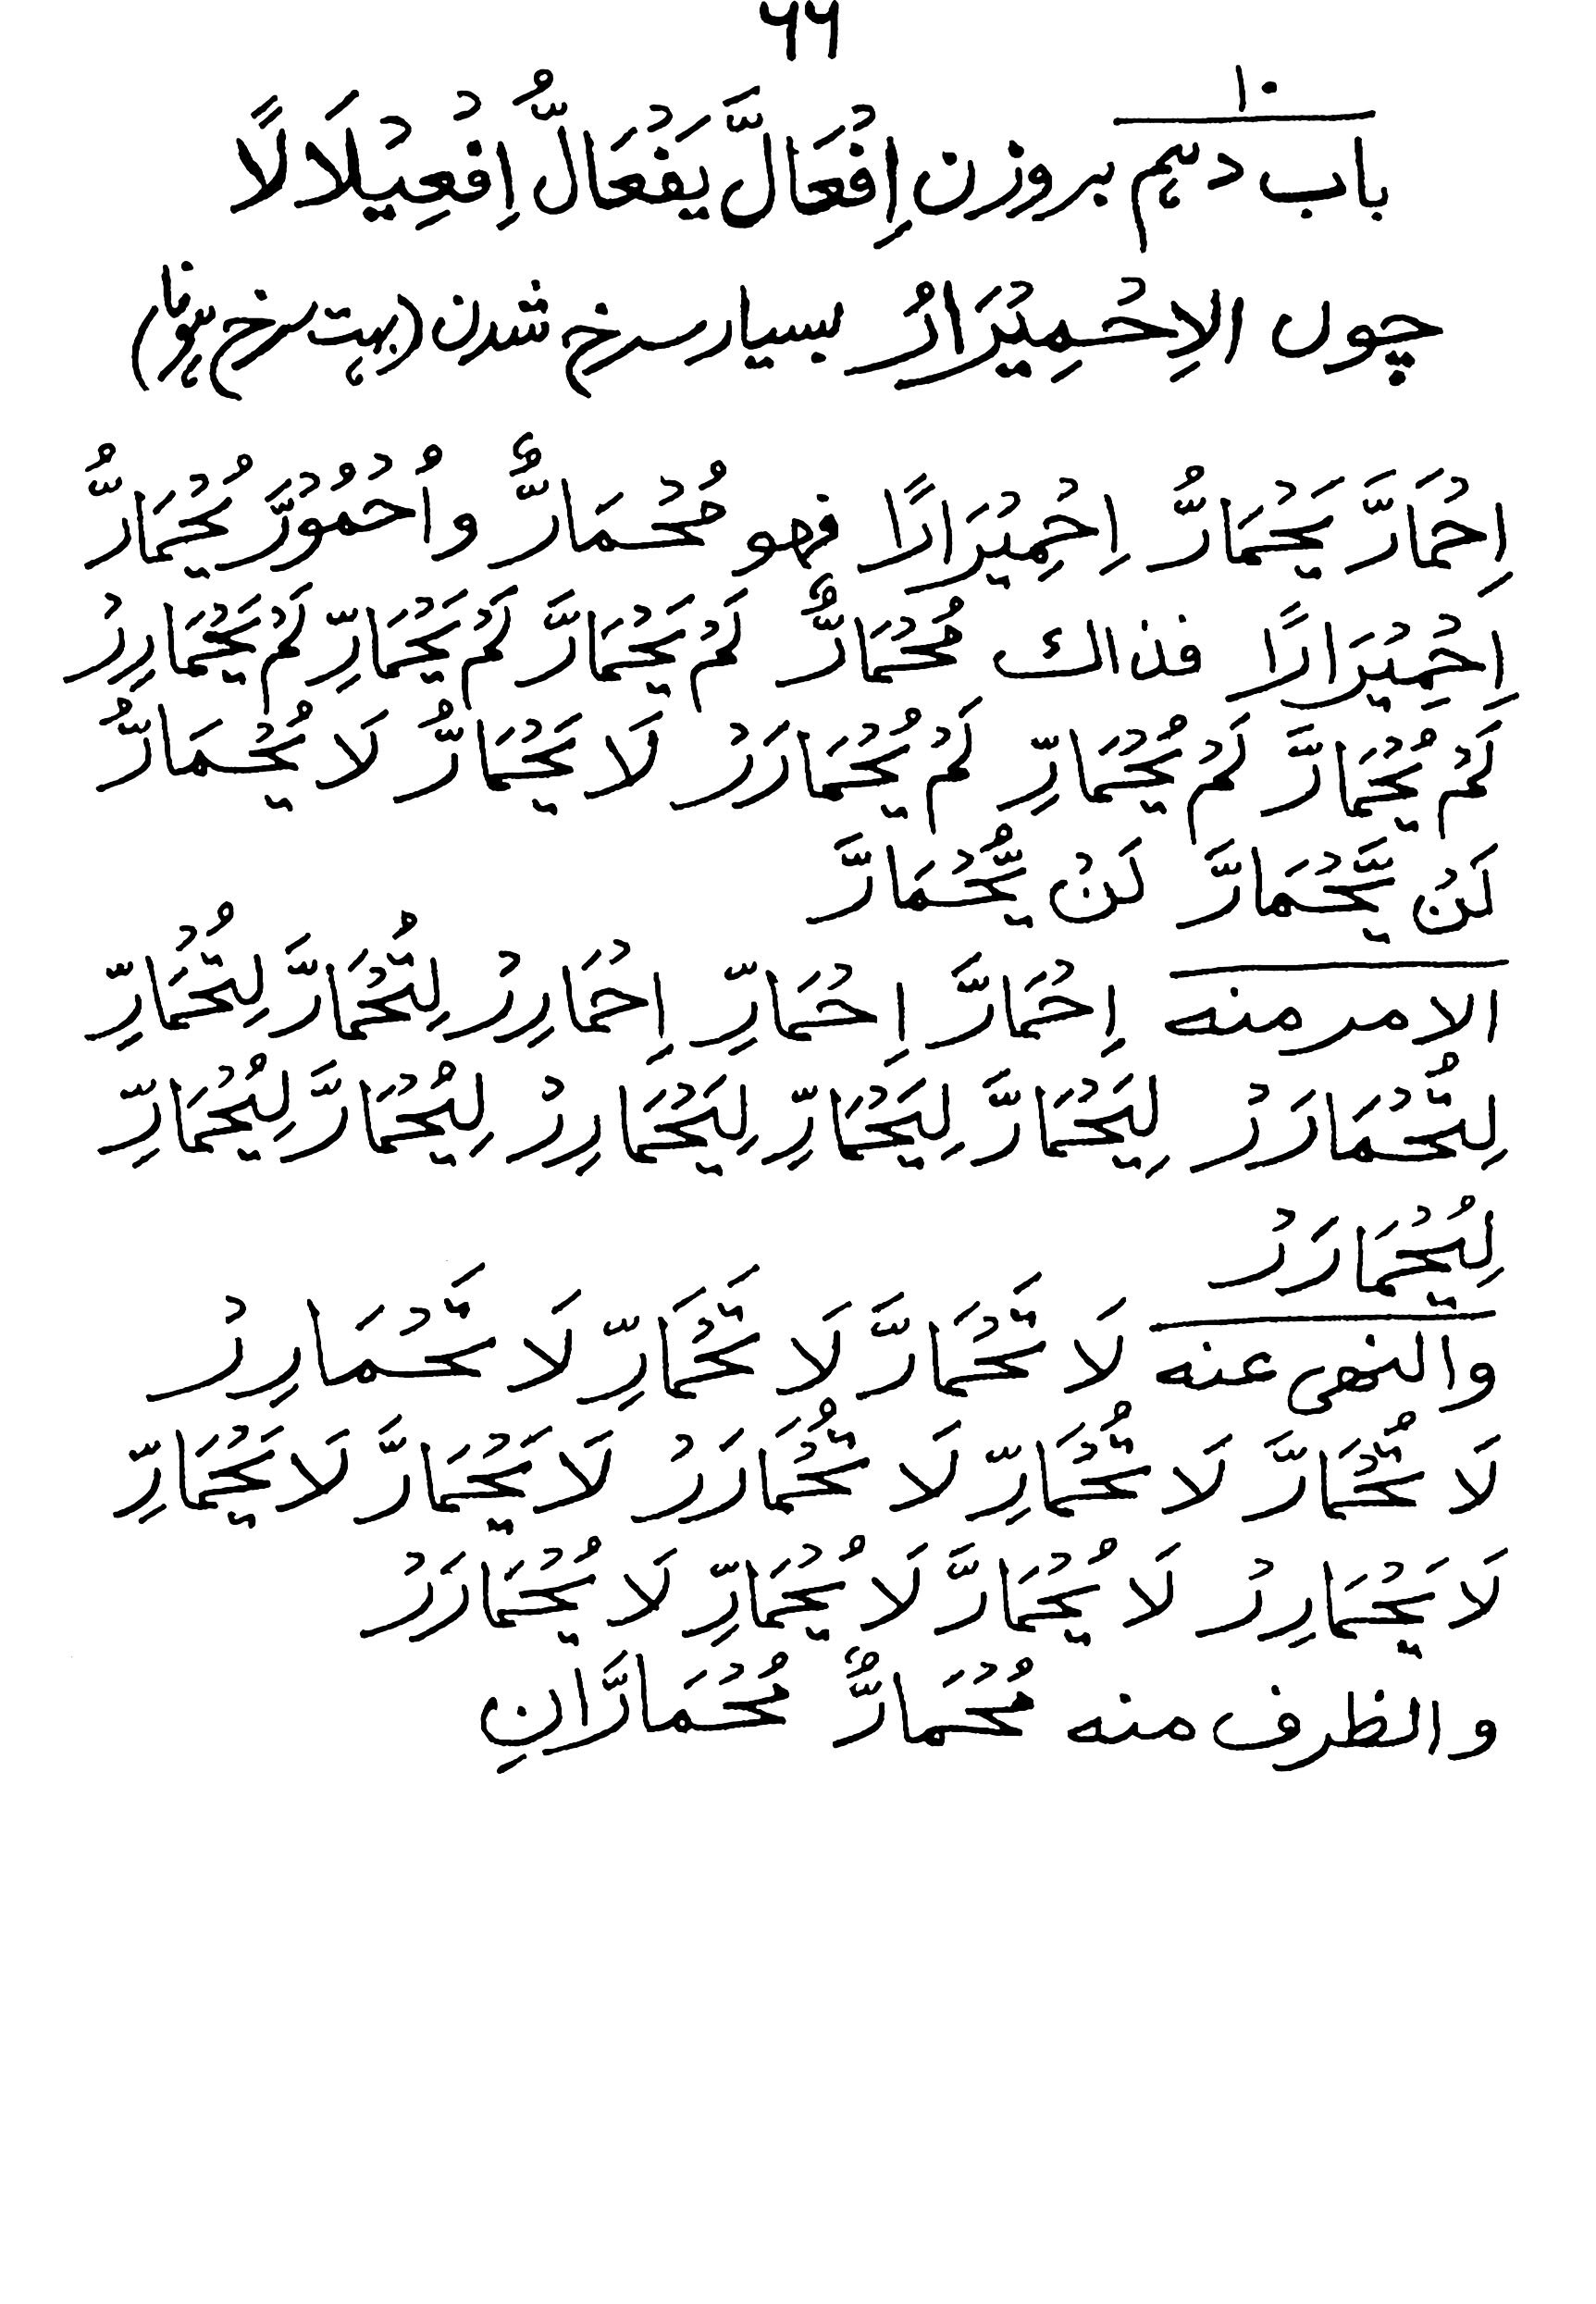 ٦٦
١٠
باب دہم بروزن اِفْعَالَّ يَفْعَالُّ اِفْعِيْلَالًا
چوں الاِحْمِيْرَارُ بسیار سرخ شدن (بہت سرخ ہونا)
اِحْمَارَّ يَحْمَارُّ اِحْمِيْرَارًا فهو مُحْمَارٌّ واُحْمُوْرَّ يُحْمَارُّ
اِحْمِيْرَارًا فذالك مُحْمَارٌّ لَمْ يَحْمَارَّ لَمْ يَحْمَارِّ لَمْ يَحْمَارِرْ
لَمْ يُحْمَارَّ لَمْ يُحْمَارِّ لَمْ يُحْمَارَرْ لَا يَحْمَارُّ لَا يُحْمَارُّ
لَنْ يَّحْمَارَّ لَنْ يُّحْمَارَّ
الامر منه اِحْمَارَّ اِحْمَارِّ اِحْمَارِرْ لِتُحْمَارَّ لِتُحْمَارِّ
لِتُحْمَارَرْ لِيَحْمَارَّ لِيَحْمَارِّ لِيَحْمَارِرْ لِيُحْمَارَّ لِيُحْمَارِّ
لِيُحْمَارَرْ
والنهى عنه لَا تَحْمَارَّ لَا تَحْمَارِّ لَا تَحْمَارِرْ
لَا تُحْمَارَّ لَا تُحْمَارِّ لَا تُحْمَارَرْ لَا يَحْمَارَّ لَا يَحْمَارِّ
لَا يَحْمَارِرْ لَا يُحْمَارَّ لَا يُحْمَارِّ لَا يُحْمَارَرْ
والظرف منه مُحْمَارٌّ مُحْمَارَّانِ